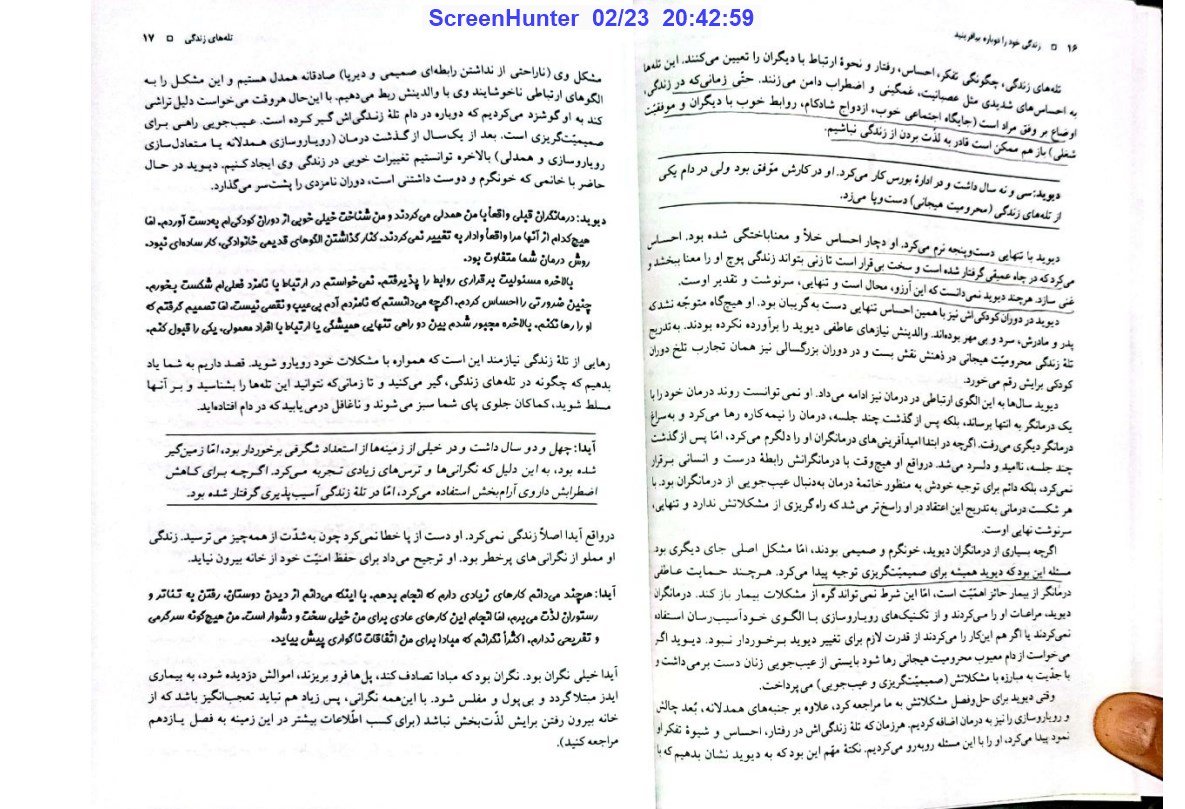 ScreenHunter 02/23 20:42:59
۱۶ □ زندگی خود را دوباره بیافرینید
تله‌های زندگی، چگونگی تفکر، احساس، رفتار و نحوهٔ ارتباط با دیگران را تعیین می‌کنند. این تله‌ها
به احساس‌های شدیدی مثل عصبانیت، غمگینی و اضطراب دامن می‌زنند. حتّی زمانی‌که در زندگی،
اوضاع بر وفق مراد است (جایگاه اجتماعی خوب، ازدواج شادکام، روابط خوب با دیگران و موفقیّت
شغلی) باز هم ممکن است قادر به لذّت بردن از زندگی نباشیم.
دیوید: سی و نه سال داشت و در ادارهٔ بورس کار می‌کرد. او در کارش موّفق بود ولی در دام یکی
از تله‌های زندگی (محرومیت هیجانی) دست‌وپا می‌زد.
دیوید با تنهایی دست‌وپنجه نرم می‌کرد. او دچار احساس خلأ و معناباختگی شده بود. احساس
می‌کرد که در چاه عمیقی گرفتار شده است و سخت بی‌قرار است تا زنی بتواند زندگی پوچ او را معنا ببخشد و
غنی سازد. هرچند دیوید نمی‌دانست که این آرزو، محال است و تنهایی، سرنوشت و تقدیر اوست.
دیوید در دوران کودکی‌اش نیز با همین احساس تنهایی دست به گریبان بود. او هیچ‌گاه متوجّه نشد که
پدر و مادرش، سرد و بی‌مهر بوده‌اند. والدینش نیازهای عاطفی دیوید را برآورده نکرده بودند. به‌تدریج
تلهٔ زندگی محرومیّت هیجانی در ذهنش نقش بست و در دوران بزرگسالی نیز همان تجارب تلخ دوران
کودکی برایش رقم می‌خورد.
دیوید سال‌ها به این الگوی ارتباطی در درمان نیز ادامه می‌داد. او نمی‌توانست روند درمان خود را با
یک درمانگر به انتها برساند، بلکه پس از گذشت چند جلسه، درمان را نیمه‌کاره رها می‌کرد و به‌سراغ
درمانگر دیگری می‌رفت. اگرچه در ابتدا امیدآفرینی‌های درمانگران او را دلگرم می‌کرد، امّا پس از گذشت
چند جلسه، ناامید و دلسرد می‌شد. درواقع او هیچ‌وقت با درمانگرانش رابطهٔ درست و انسانی برقرار
نمی‌کرد، بلکه دائم برای توجیه خودش به منظور خاتمهٔ درمان به‌دنبال عیب‌جویی از درمانگران بود. با
هر شکست درمانی به‌تدریج این اعتقاد در او راسخ‌تر می‌شد که راه گریزی از مشکلاتش ندارد و تنهایی،
سرنوشت نهایی اوست.
اگرچه بسیاری از درمانگران دیوید، خونگرم و صمیمی بودند، امّا مشکل اصلی جای دیگری بود.
مسئله این بود که دیوید همیشه برای صمیمیّت‌گریزی توجیه پیدا می‌کرد. هرچند حمایت عاطفی
درمانگر از بیمار حائز اهمّیّت است، امّا این شرط نمی‌تواند گره از مشکلات بیمار باز کند. درمانگران
دیوید، مراعات او را می‌کردند و از تکنیک‌های رویاروسازی با الگوی خودآسیب‌رسان استفاده
نمی‌کردند یا اگر هم این‌کار را می‌کردند از قدرت لازم برای تغییر دیوید برخوردار نبود. دیوید اگر
می‌خواست از دام معیوب محرومیت هیجانی رها شود بایستی از عیب‌جویی زنان دست برمی‌داشت و
با جذیت به مبارزه با مشکلاتش (صمیمیّت‌گریزی و عیب‌جویی) می‌پرداخت.
وقتی دیوید برای حل‌وفصل مشکلاتش به ما مراجعه کرد، علاوه بر جنبه‌های همدلانه، بُعد چالش
و رویاروسازی را نیز به درمان اضافه کردیم. هرزمان که تلهٔ زندگی‌اش در رفتار، احساس و شیوهٔ تفکر او
نمود پیدا می‌کرد، او را با این مسئله روبه‌رو می‌کردیم. نکتهٔ مهّم این بود که به دیوید نشان بدهیم که با
تله‌های زندگی □ ۱۷
مشکل وی (ناراحتی از نداشتن رابطه‌ای صمیمی و دیرپا) صادقانه همدل هستیم و این مشکل را به
الگوهای ارتباطی ناخوشایند وی با والدینش ربط می‌دهیم. با این‌حال هروقت می‌خواست دلیل تراشی
کند به او گوشزد می‌کردیم که دوباره در دام تلهٔ زندگی‌اش گیر کرده است. عیب‌جویی راهی برای
صمیمیّت‌گریزی است. بعد از یک‌سال از گذشت درمان (رویاروسازی همدلانه یا متعادل‌سازی
رویاروسازی و همدلی) بالاخره توانستیم تغییرات خوبی در زندگی وی ایجاد کنیم. دیوید در حال
حاضر با خانمی که خونگرم و دوست داشتنی است، دوران نامزدی را پشت‌سر می‌گذارد.
دیوید: درمانگران قبلی واقعاً با من همدلی می‌کردند و من شناخت خیلی خوبی از دوران کودکی‌ام به‌دست آوردم. امّا
هیچ‌کدام از آنها مرا واقعاً وادار به تغییر نمی‌کردند. کنار گذاشتن الگوهای قدیمی خانوادگی، کار ساده‌ای نبود.
روش درمان شما متفاوت بود.
بالاخره مسئولیت برقراری روابط را پذیرفتم. نمی‌خواستم در ارتباط با نامزد فعلی‌ام شکست بخورم.
چنین ضرورتی را احساس کردم. اگرچه می‌دانستم که نامزدم آدم بی‌عیب و نقصی نیست، امّا تصمیم گرفتم که
او را رها نکنم. بالاخره مجبور شدم بین دو راهی تنهایی همیشگی یا ارتباط با افراد معمولی، یکی را قبول کنم.
رهایی از تلهٔ زندگی نیازمند این است که همواره با مشکلات خود رویارو شوید. قصد داریم به شما یاد
بدهیم که چگونه در تله‌های زندگی، گیر می‌کنید و تا زمانی‌که نتوانید این تله‌ها را بشناسید و بر آنها
مسلط شوید، کماکان جلوی پای شما سبز می‌شوند و ناغافل درمی‌یابید که در دام افتاده‌اید.
آیدا: چهل و دو سال داشت و در خیلی از زمینه‌ها از استعداد شگرفی برخوردار بود، امّا زمین‌گیر
شده بود، به این دلیل که نگرانی‌ها و ترس‌های زیادی تجربه می‌کرد. اگرچه برای کاهش
اضطرابش داروی آرام‌بخش استفاده می‌کرد، امّا در تلهٔ زندگی آسیب‌پذیری گرفتار شده بود.
درواقع آیدا اصلاً زندگی نمی‌کرد. او دست از پا خطا نمی‌کرد چون به‌شدّت از همه‌چیز می‌ترسید. زندگی
او مملو از نگرانی‌های پرخطر بود. او ترجیح می‌داد برای حفظ امنیّت خود از خانه بیرون نیاید.
آیدا: هرچند می‌دانم کارهای زیادی دارم که انجام بدهم، با اینکه می‌دانم از دیدن دوستان، رفتن به تئاتر و
رستوران لذّت می‌برم، امّا انجام این کارهای عادی برای من خیلی سخت و دشوار است. من هیچ‌گونه سرگرمی
و تفریحی ندارم. اکثراً نگرانم که مبادا برای من اتفاقات ناگواری پیش بیاید.
آیدا خیلی نگران بود. نگران بود که مبادا تصادف کند، پل‌ها فرو بریزند، اموالش دزدیده شود، به بیماری
ایدز مبتلا گردد و بی‌پول و مفلس شود. با این‌همه نگرانی، پس زیاد هم نباید تعجب‌انگیز باشد که از
خانه بیرون رفتن برایش لذّت‌بخش نباشد (برای کسب اطّلاعات بیشتر در این زمینه به فصل یازدهم
مراجعه کنید).